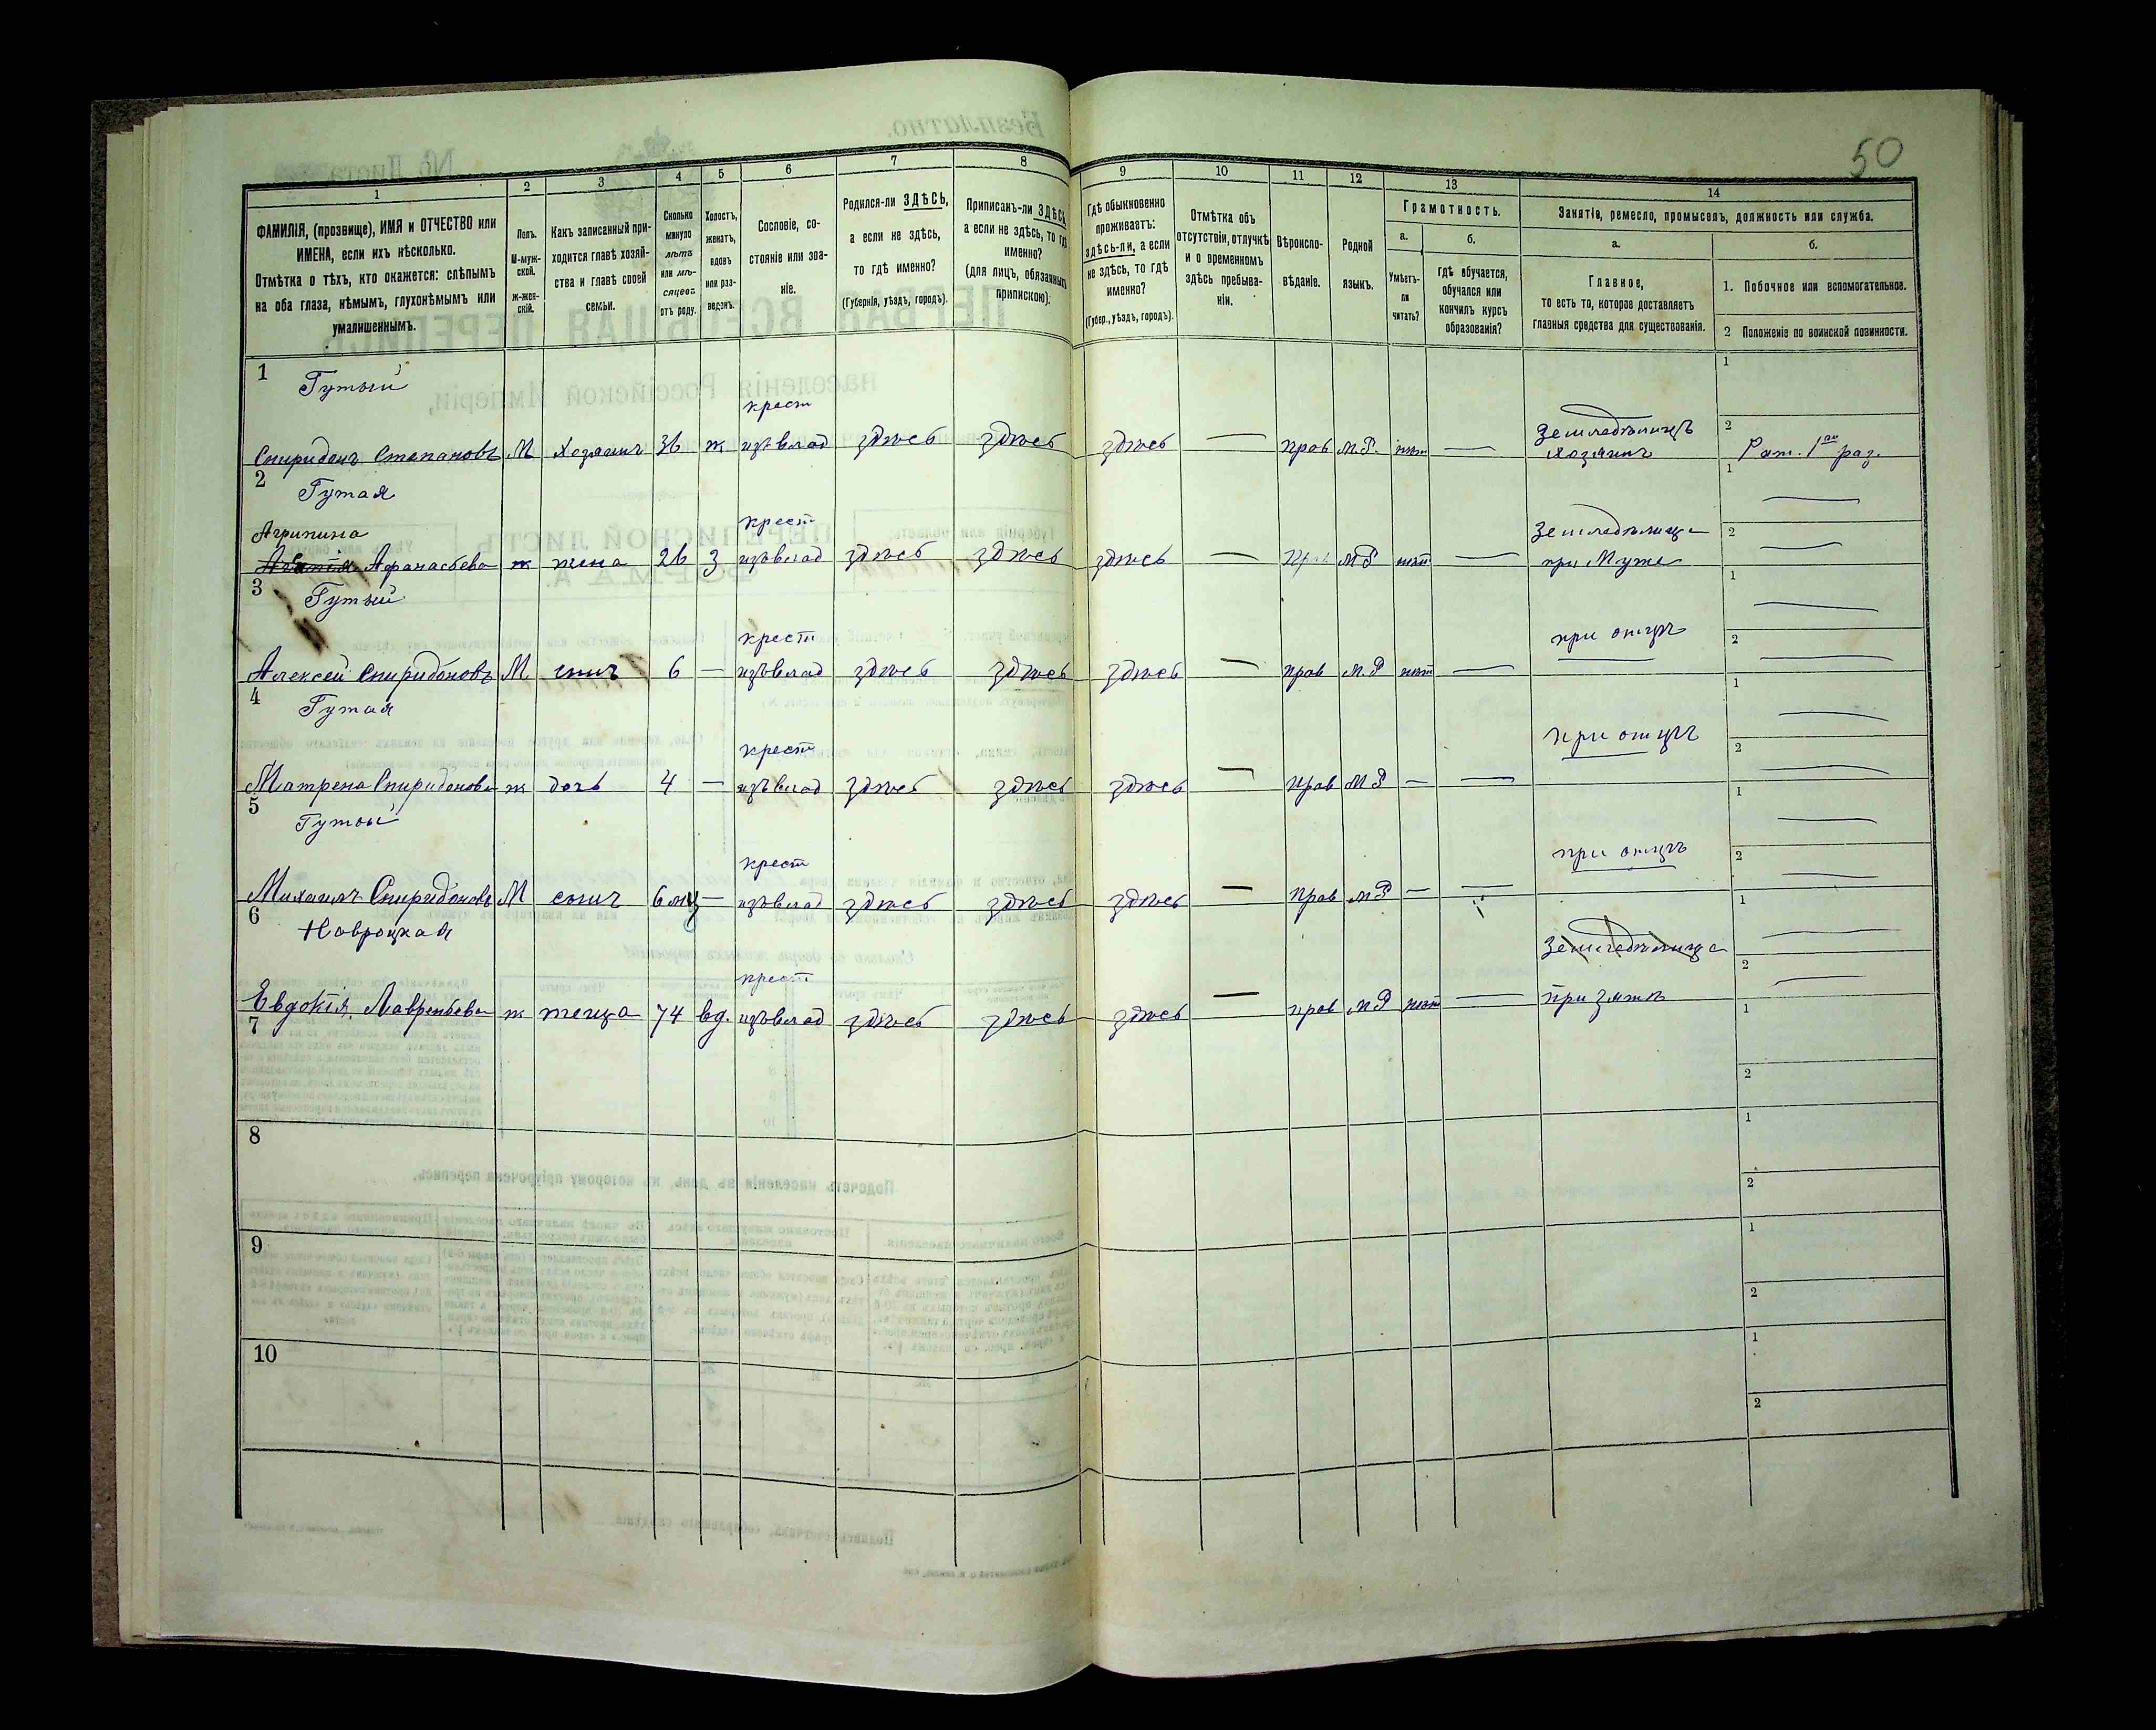 50
1 2 3 4 5 6 7 8 9 10 11 12 13 14
ФАМИЛІЯ, (прозвище), ИМЯ и ОТЧЕСТВО или ИМЕНА, если ихъ нѣсколько.
Отмѣтка о тѣхъ, кто окажется: слѣпымъ на оба глаза, нѣмымъ, глухонѣмымъ или умалишеннымъ.
Полъ. М-муж-ской. Ж-жен-скій.
Какъ записанный при-ходится главѣ хозяй-ства и главѣ своей семьи.
Сколько минуло лѣтъ или мѣ-сяцевъ отъ роду.
Холостъ, женатъ, вдовъ или раз-веденъ.
Сословіе, со-стояніе или зва-ніе.
Родился-ли ЗДѢСЬ, а если не здѣсь, то гдѣ именно?
(Губернія, уѣздъ, городъ).
Приписанъ-ли ЗДѢСЬ, а если не здѣсь, то гдѣ именно?
(для лицъ, обязанныхъ припискою).
Гдѣ обыкновенно проживаетъ: здѣсь-ли, а если не здѣсь, то гдѣ именно?
(Губер., уѣздъ, городъ).
Отмѣтка объ отсутствіи, отлучкѣ и о временномъ здѣсь пребыва-ніи.
Вѣроиспо-вѣданіе.
Родной языкъ.
Грамотность.
а. Умѣетъ-ли читать?
б. гдѣ обучается, обучался или кончилъ курсъ образованія?
Занятіе, ремесло, промыселъ, должность или служба.
а. Главное, то есть то, которое доставляетъ главныя средства для существованія.
б.
1. Побочное или вспомогательное.
2 Положеніе по воинской повинности.
1 Гутый
крест Земледѣлецъ
Спиридонъ Степановъ М Хозяинъ 36 ж изъ влад здѣсь здѣсь здѣсь — прав М.Р. нѣт — Хозяинъ Рат. 1го раз.
2 Гутая
Агрипина крест Земледѣлица
Афанасьева ж жена 26 З изъ влад здѣсь здѣсь здѣсь — МР нѣт — при Муже
3 Гутый
крест при отцѣ
Алексей Спиридоновъ М сынъ 6 — изъ влад здѣсь здѣсь здѣсь — прав М.Р нѣт —
4 Гутая
крест при отцѣ
Матрена Спиридонова ж дочь 4 — изъ влад здѣсь здѣсь здѣсь — прав МР — —
5 Гутый
крест при отцѣ
Михаилъ Спиридоновъ М сынъ 6 мц — изъ влад здѣсь здѣсь здѣсь — прав МР — —
6 Навроцкая
крест Земледѣлица
Евдокія Лаврентьева ж теща 74 вд. изъ влад здѣсь здѣсь здѣсь — прав МР нѣт — при зятѣ
7
8
9
10